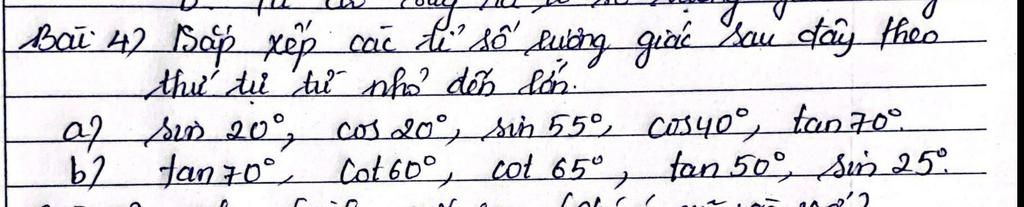 Bài 4) Sắp xếp các tỉ số lượng giác sau đây theo
thứ tự từ nhỏ đến lớn.
a) sin 20°, cos 20°, sin 55°, cos 40°, tan 70°.
b) tan 70°, cot 60°, cot 65°, tan 50°, sin 25°.